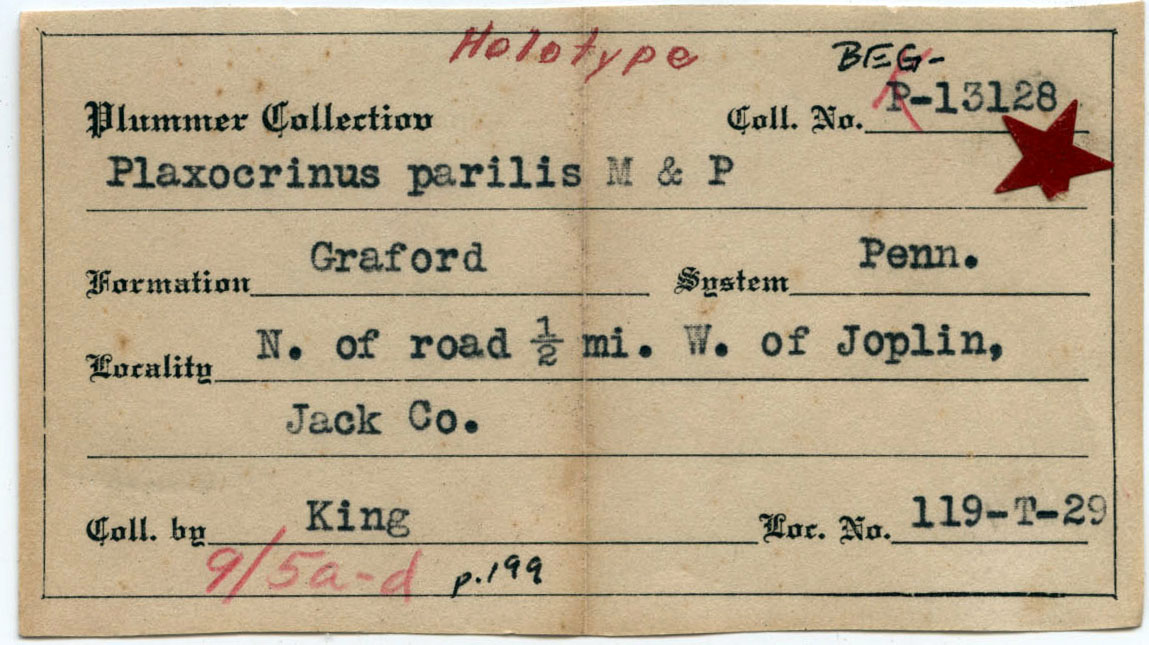 Holotype
BEG-
Plummer Collection Coll. No. P-13128
Plaxocrinus parilis M & P
Formation Graford System Penn.
Locality N. of road ½ mi. W. of Joplin,
Jack Co.
Coll. by King Loc. No. 119-T-29
9/5a-d p.199